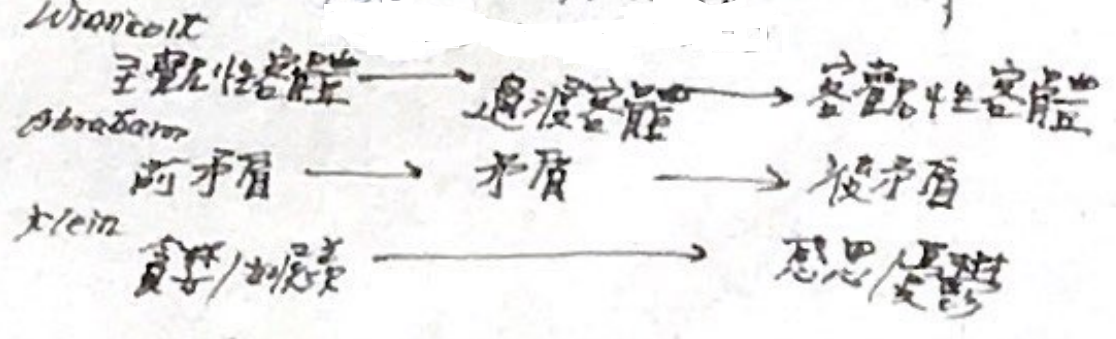 Winnicott
主觀性客體 → 過渡客體 → 客觀性客體
Abraham
前矛盾 → 矛盾 → 後矛盾
Klein
→ /憂鬱